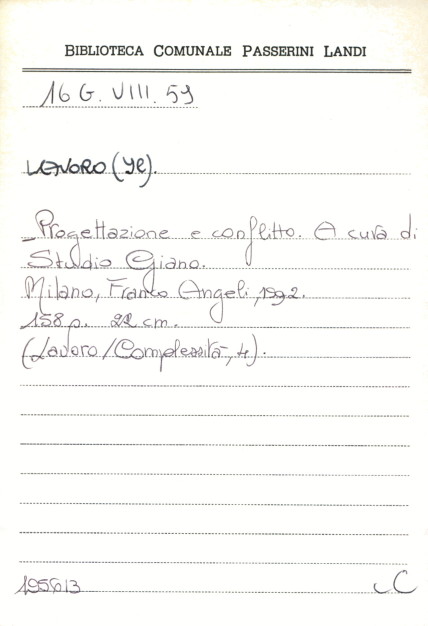 BIBLIOTECA COMUNALE PASSERINI LANDI
16 G. VIII. 59
LAVORO (Il).
_Progettazione e conflitto. A cura di
Studio Giano.
Milano, Franco Angeli, 1992.
158 p. 22 cm.
(Lavoro/Complessità, 4).
195613